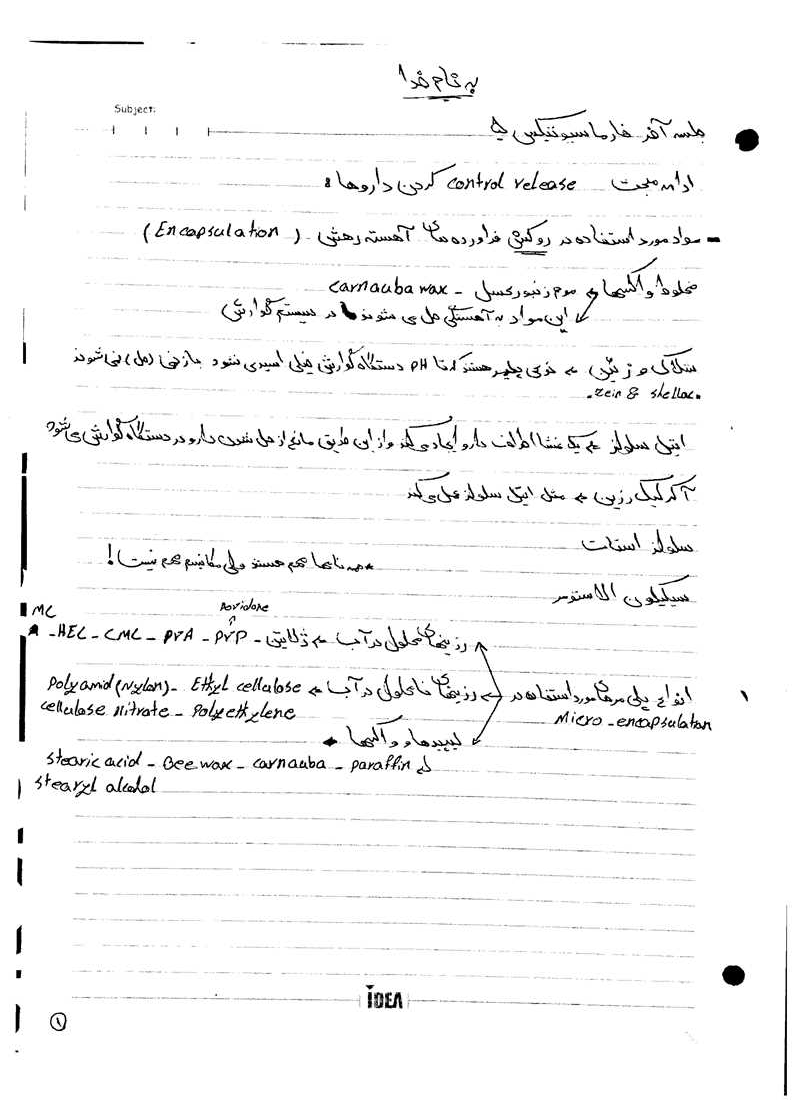 به نام خدا
Subject:
جلسه آخر فارماسیوتیکس
ادامه مبحث control release کردن داروها:
- مواد مورد استفاده در روکش فراورده های آهسته رهش (Encapsulation)
مخلوط واکسها ← موم زنبور عسل - carnauba wax
این مواد به آهستگی حل می شوند در سیستم گوارش
شلاک و زئین ← نوعی پلیمر هستند که تا pH دستگاه گوارش خیلی اسیدی نشود باز نمی (حل) نمی شوند
. zein & shellac .
اتیل سلولز ← یک غشا اطراف دارو ایجاد می کند و از این طریق مانع از حل شدن دارو در دستگاه گوارش می شود
آکرلیک رزین ← مثل اتیل سلولز عمل می کند
سلولز استات
* نامها مهم هستند ولی مکانیسم مهم نیست!
سیلیکون الاستومر
MC
Povidone
رزینهای محلول در آب ← ژلاتین - PVP - PVA - CMC - HEC -
انواع پلی مرهای مورد استفاده در Micro-encapsulation
رزینهای نامحلول در آب ← Ethyl cellulose - Polyamid (Nylon)
cellulose Nitrate - Polyethylene
لیپیدها و واکسها
stearic acid - Bee wax - carnauba - paraffin
stearyl alcohol
IDEA
۱